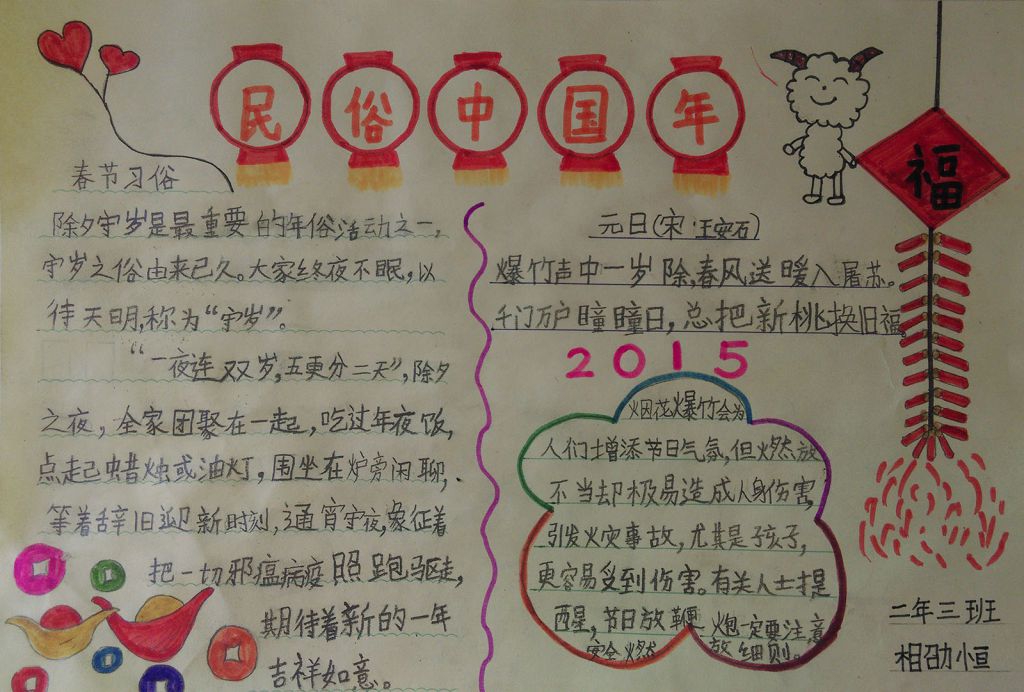 民俗中国年
福
春节习俗
除夕守岁是最重要的年俗活动之一,
守岁之俗由来已久。大家终夜不眠,以
待天明,称为“守岁”。
“一夜连双岁,五更分二天”,除夕
之夜,全家团聚在一起,吃过年夜饭,
点起蜡烛或油灯,围坐在炉旁闲聊,
等着辞旧迎新时刻,通宵守夜,象征着
把一切邪瘟病疫照跑驱走,
期待着新的一年
吉祥如意。
元日(宋·王安石)
爆竹声中一岁除,春风送暖入屠苏。
千门万户瞳瞳日,总把新桃换旧福。
2015
烟花爆竹会为
人们增添节日气氛,但燃放
不当却极易造成人身伤害,
引发火灾事故,尤其是孩子,
更容易受到伤害。有关人士提
醒,节日放鞭炮一定要注意
安全燃放细则。
二年三班
相劭恒